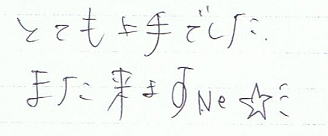 とても上手でした.
また来ますNe☆ミ